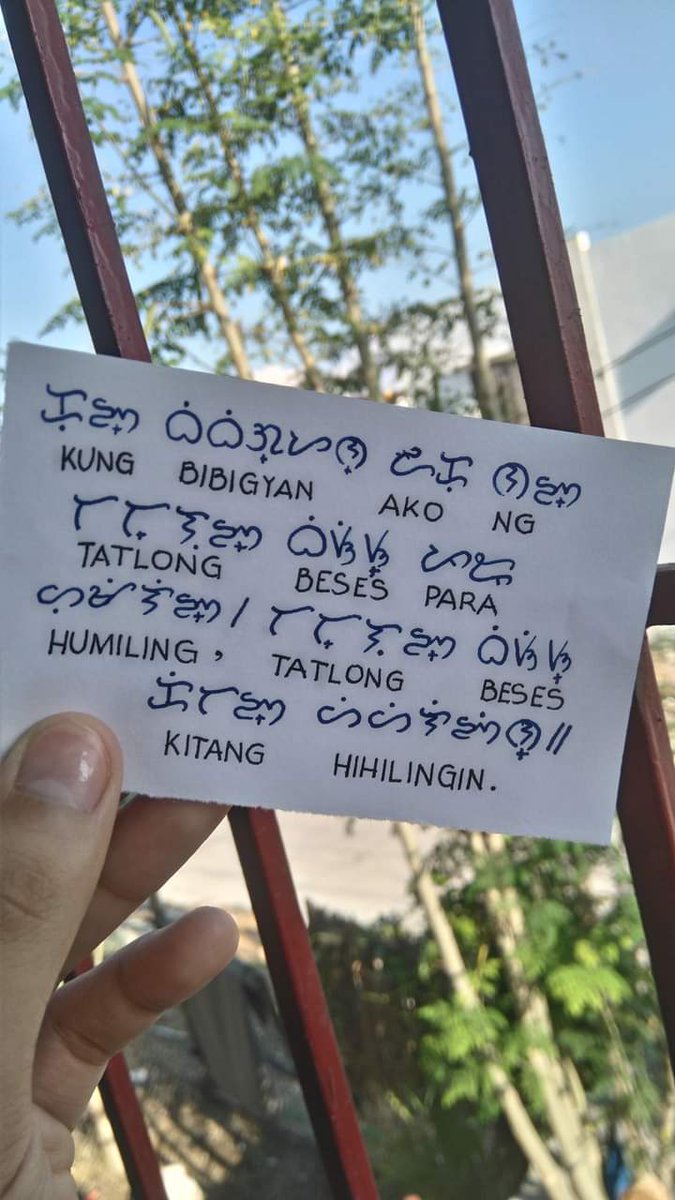 ᜃᜓᜅ᜔ ᜊᜒᜊᜒᜄ᜔ᜌᜈ᜔ ᜀᜃᜓ ᜈᜅ᜔
KUNG BIBIGYAN AKO NG
ᜆᜆ᜔ᜎᜓᜅ᜔ ᜊᜒᜐᜒᜐ᜔ ᜉᜇ
TATLONG BESES PARA
ᜑᜓᜋᜒᜎᜒᜅ᜔᜵ ᜆᜆ᜔ᜎᜓᜅ᜔ ᜊᜒᜐᜒᜐ᜔
HUMILING, TATLONG BESES
ᜃᜒᜆᜅ᜔ ᜑᜒᜑᜒᜎᜒᜅᜒᜈ᜔᜶
KITANG HIHILINGIN.